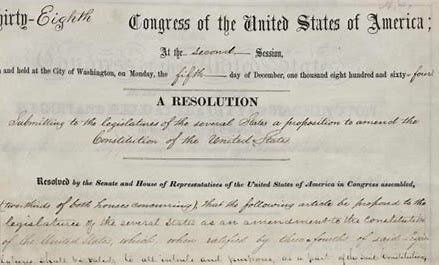 hirty-Eighth Congress of the United States of America;
At the second Session,
n and held at the City of Washington, on Monday, the fifth day of December, one thousand eight hundred and sixty-four
A RESOLUTION
Submitting to the legislatures of the several States a proposition to amend the
Constitution of the United States
Resolved by the Senate and House of Representatives of the United States of America in Congress assembled,
(two thirds of both houses concurring), That the following article be proposed to the
legislatures of the several States as an amendment to the Constitution
of the United States, which, when ratified by three-fourths of said Legis
latures shall be valid, to all intents and purposes, as a part of the said Constitution,